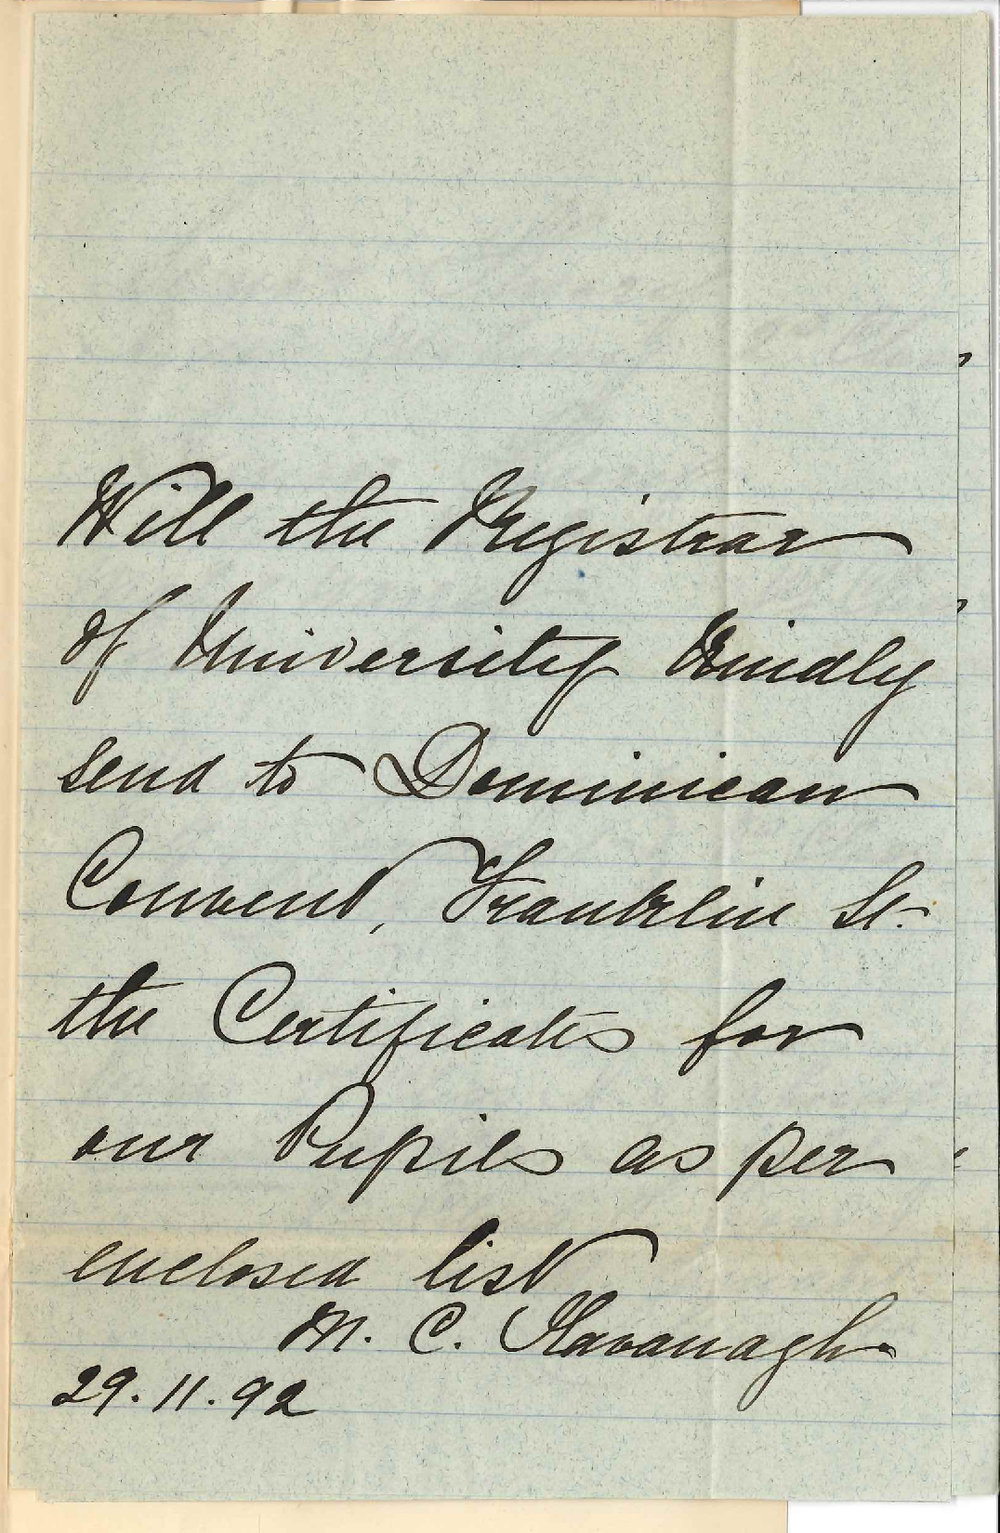 Will the Registrar
of University Kindly
send to Dominican
Convent, Franklin St.
the Certificates for
our Pupils as per
enclosed list
M. C. Kavanagh.
29.11.92